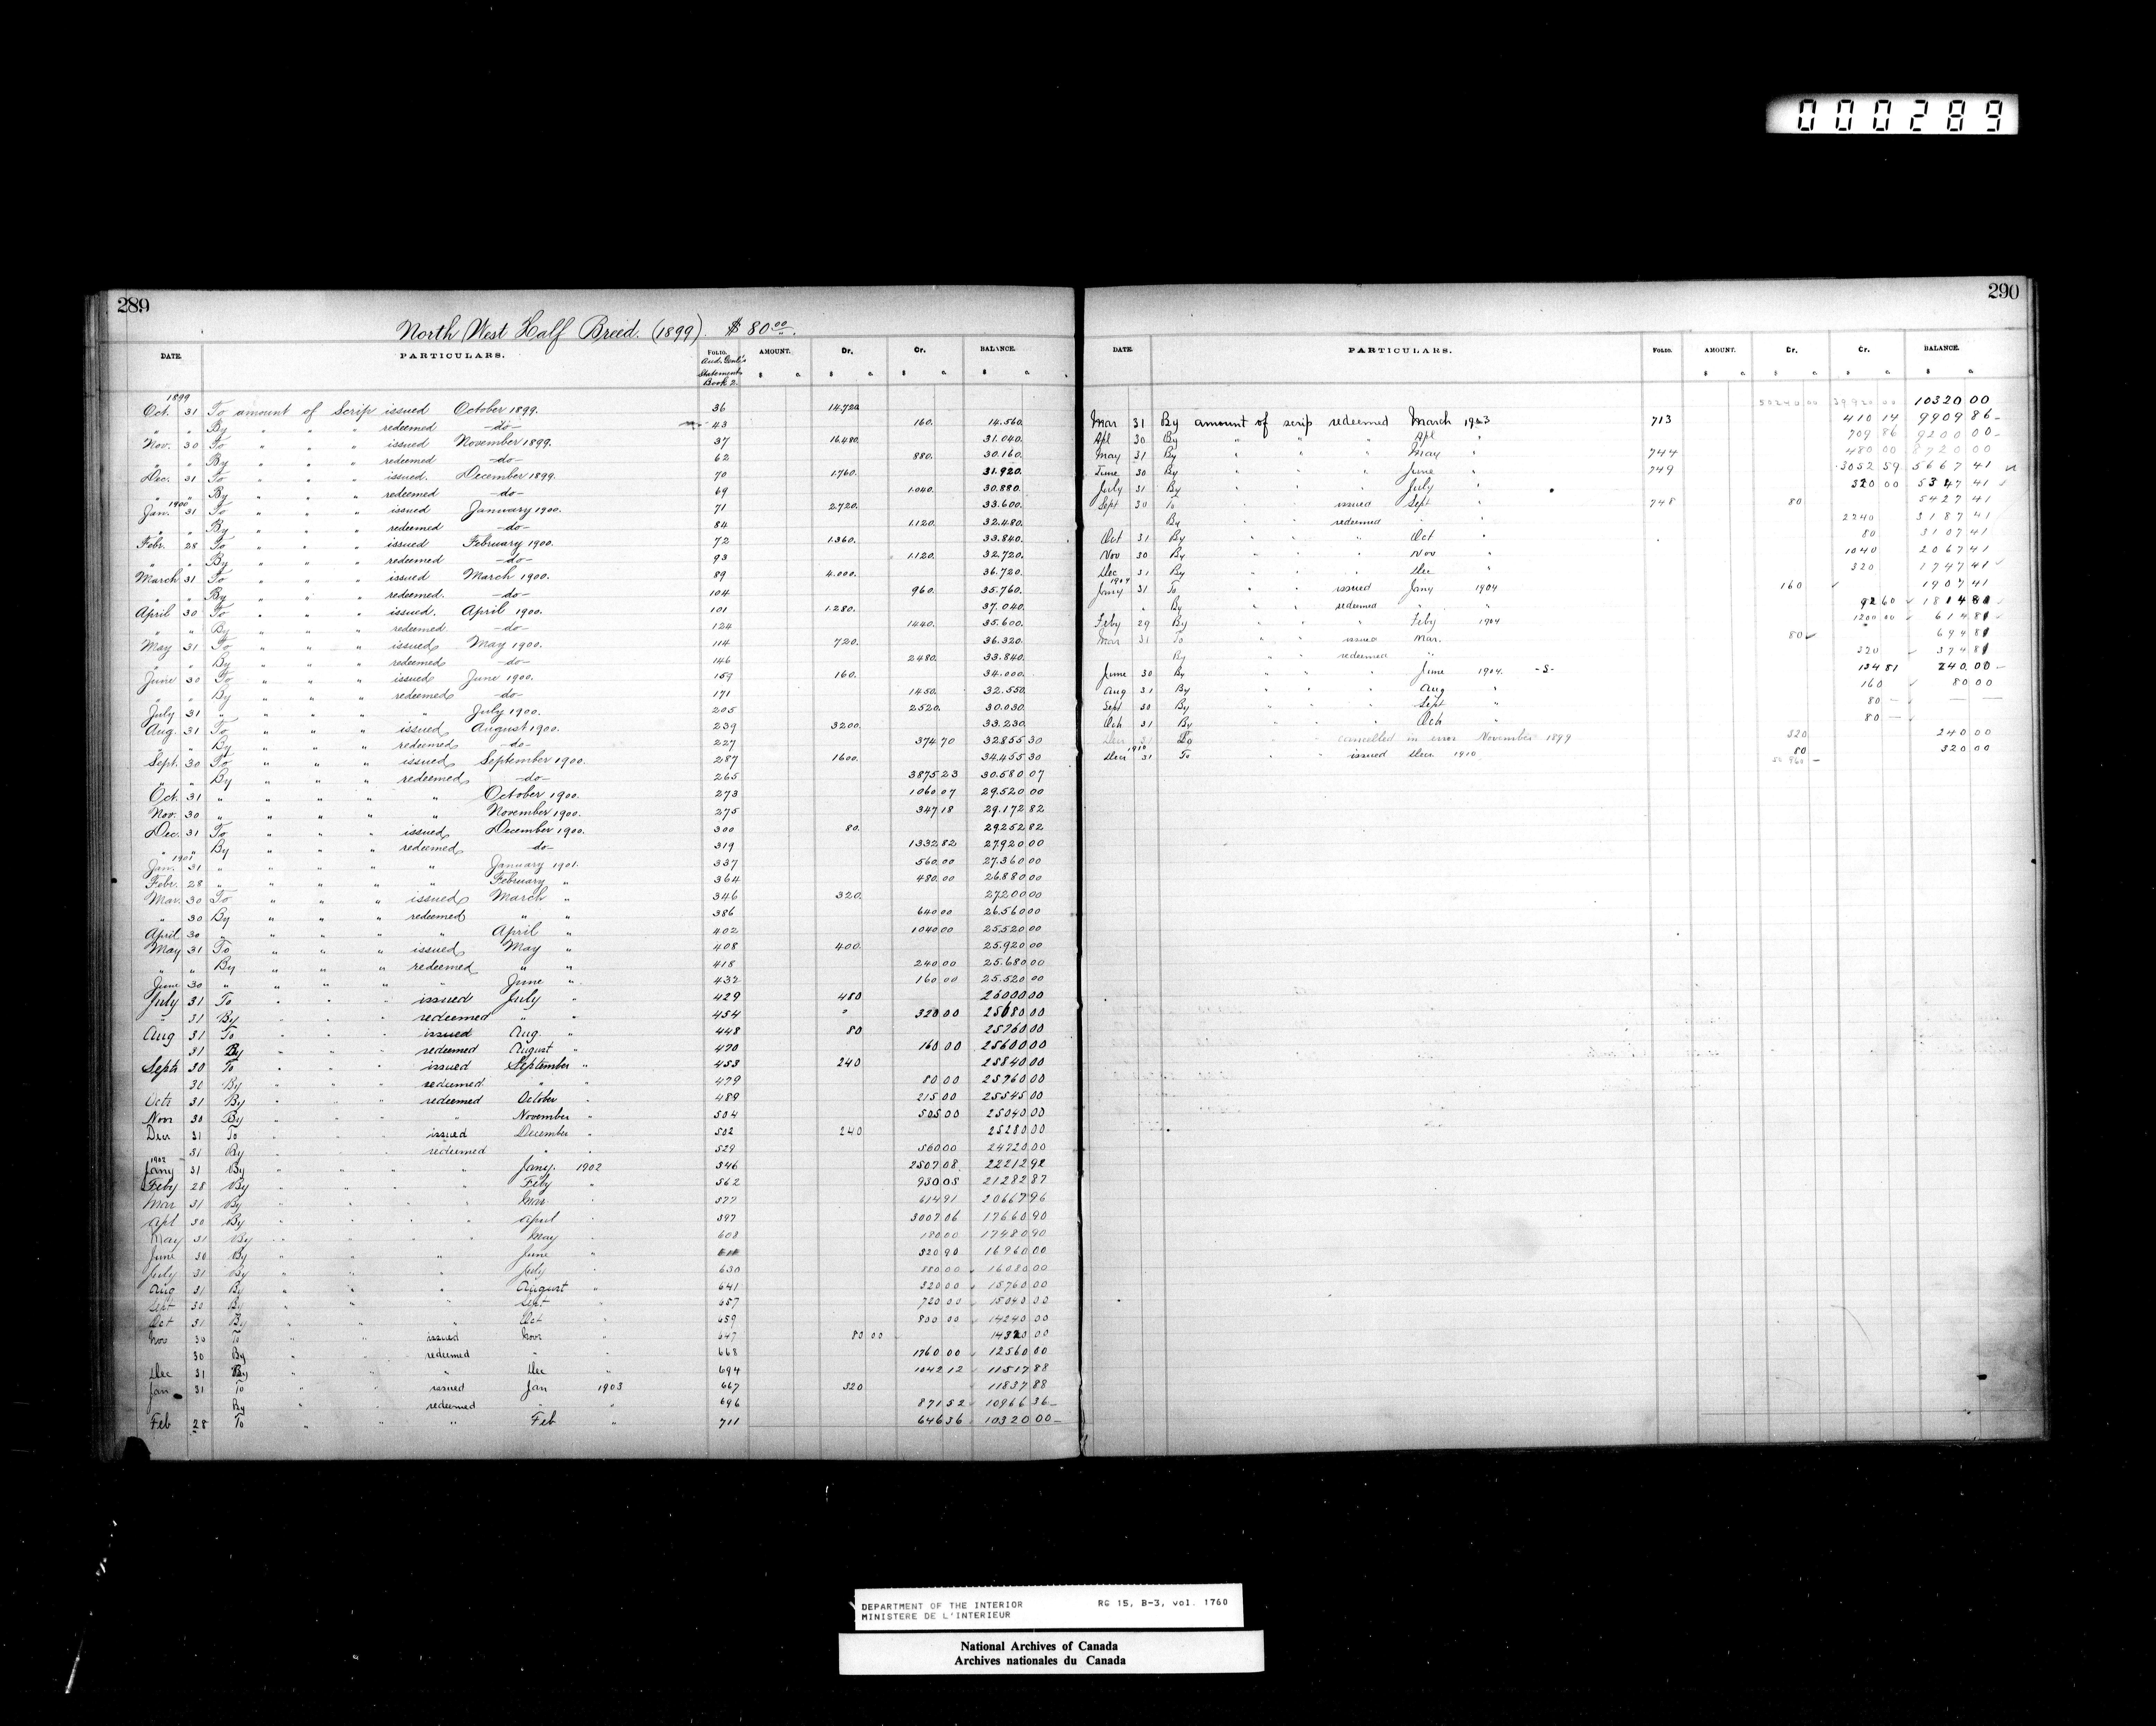 000289
289
North West Half Breed. (1899). $ 80.00
DATE. PARTICULARS. FOLIO. AMOUNT. Dr. Cr. BALANCE.
Aud. Genl's
Statements
Book 2.
$ c. $ c. $ c. $ c.
1899
Oct. 31 To amount of Scrip issued October 1899. 36 14.720
" " By " " " redeemed -do- 43 160. 14.560.
Nov. 30 To " " " issued November 1899. 37 16.480. 31.040.
" " By " " " redeemed -do- 62 880. 30.160.
Dec. 31 To " " " issued. December 1899. 70 1.760. 31.920.
" " By " " " redeemed -do- 69 1.040. 30.880.
1900
Jan. 31 To " " " issued January 1900. 71 2.720. 33.600.
" " By " " " redeemed -do- 84 1.120. 32.480.
Febr. 28 To " " " issued February 1900. 72 1.360. 33.840.
" " By " " " redeemed -do- 93 1.120. 32.720.
March 31 To " " " issued March 1900. 89 4.000. 36.720.
" " By " " " redeemed. -do- 104 960. 35.760.
April 30 To " " " issued. April 1900. 101 1.280. 37.040.
" " By " " " redeemed -do- 124 1440. 35.600.
May 31 To " " " issued May 1900. 114 720. 36.320.
" " By " " " redeemed -do- 146 2480. 33.840.
June 30 To " " " issued June 1900. 159 160. 34.000.
" " By " " " redeemed -do- 171 1450. 32.550.
July 31 " " " " " July 1900. 205 2520. 30.030.
Aug. 31 To " " " issued August 1900. 239 3200. 33.230.
" " By " " " redeemed -do- 227 374 70 32.855 30
Sept. 30 To " " " issued September 1900. 287 1600. 34.455 30
" " By " " " redeemed -do- 265 3875 23 30.580 07
Oct. 31 " " " " " October 1900. 273 1060 07 29.520 00
Nov. 30 " " " " " November 1900. 275 347 18 29.172 82
Dec. 31 To " " " issued December 1900. 300 80. 29252 82
" " By " " " redeemed -do- 319 1332 82 27.920 00
1901
Jan. 31 " " " " " January 1901. 337 560.00 27.360 00
Febr. 28 " " " " " February " 364 480.00 26.880 00
Mar. 30 To " " " issued March " 346 320. 27.200 00
" 30 By " " " redeemed " " 386 640 00 26.560 00
April 30 " " " " " April " 402 1040 00 25.520 00
May 31 To " " " issued May " 408 400. 25.920 00
" " By " " " redeemed " " 418 240 00 25.680 00
June 30 " " " " " June " 432 160 00 25.520 00
July 31 To " " " issued July " 429 480 26000 00
" 31 By " " " redeemed " " 454 " 320 00 25680 00
Aug 31 To " " " issued Aug. " 448 80 25760 00
31 By " " " redeemed August " 470 160 00 25600 00
Septr 30 To " " " issued September " 453 240 25840 00
30 By " " " redeemed " " 479 80 00 25760 00
Octr 31 By " " " redeemed October " 489 215 00 25545 00
Novr 30 By " " " " November " 504 505 00 25040 00
Decr 31 To " " " issued December " 502 240 25280 00
31 By " " " redeemed " " 529 560 00 24720 00
1902
Jany 31 By " " " " Jany. 1902 546 2507 08 22212 92
Feby 28 By " " " " Feby " 562 930 05 21282 87
Mar 31 By " " " " Mar. " 577 614 91 20667 96
Apl 30 By " " " " April " 597 3007 06 17660 90
May 31 By " " " " May " 608 180 00 17480 90
June 30 By " " " " June " 520 90 16960 00
July 31 By " " " " July " 630 880 00 16080 00
Aug 31 By " " " " August " 641 320 00 15760 00
Sept 30 By " " " " Sept " 657 720 00 15040 00
Oct 31 By " " " " Oct " 659 800 00 14240 00
Nov 30 To " " " issued Novr " 647 80 00 14320 00
30 By " " " redeemed " " 668 1760 00 12560 00
Dec 31 By " " " " Dec " 694 1042 12 11517 88
Jan 31 To " " " issued Jan 1903 667 320 11837 88
By " " " redeemed " " 696 871 52 10966 36
Feb 28 To " " " " Feb " 711 646 36 10320 00
290
DATE. PARTICULARS. FOLIO. AMOUNT. Cr. Cr. BALANCE.
$ c. $ c. $ c. $ c.
50240 00 39920 00 10320 00
Mar 31 By amount of scrip redeemed March 1903 713 410 14 9909 86
Apl 30 By " " " Apl " 709 86 9200 00
May 31 By " " " May " 744 480 00 8720 00
June 30 By " " " June " 749 3052 59 5667 41
July 31 By " " " July " 320 00 5347 41
Sept 30 To " " issued Sept " 748 80 5427 41
By " " redeemed " " 2240 3187 41
Oct 31 By " " " Oct " 80 3107 41
Nov 30 By " " " Nov " 1040 2067 41
Dec 31 By " " " Dec " 320 1747 41
1904
Jany 31 To " " issued Jany 1904 160 1907 41
" By " " redeemed " " 92 60 1814 81
Feby 29 By " " " Feby 1904 1200 00 614 81
Mar 31 To " " issued Mar. 80 694 81
By " " redeemed " 320 374 81
June 30 By " " " June 1904. -S- 134 81 240.00
Aug 31 By " " " Aug " 160 80 00
Sept 30 By " " " Sept " 80
Oct 31 By " " " Oct " 80
Decr 31 To cancelled in error November 1899 320 240 00
1910
Decr 31 To " " issued Decr 1910 80 320 00
50 960
DEPARTMENT OF THE INTERIOR RG 15, B-3, vol. 1760
MINISTERE DE L'INTERIEUR
National Archives of Canada
Archives nationales du Canada